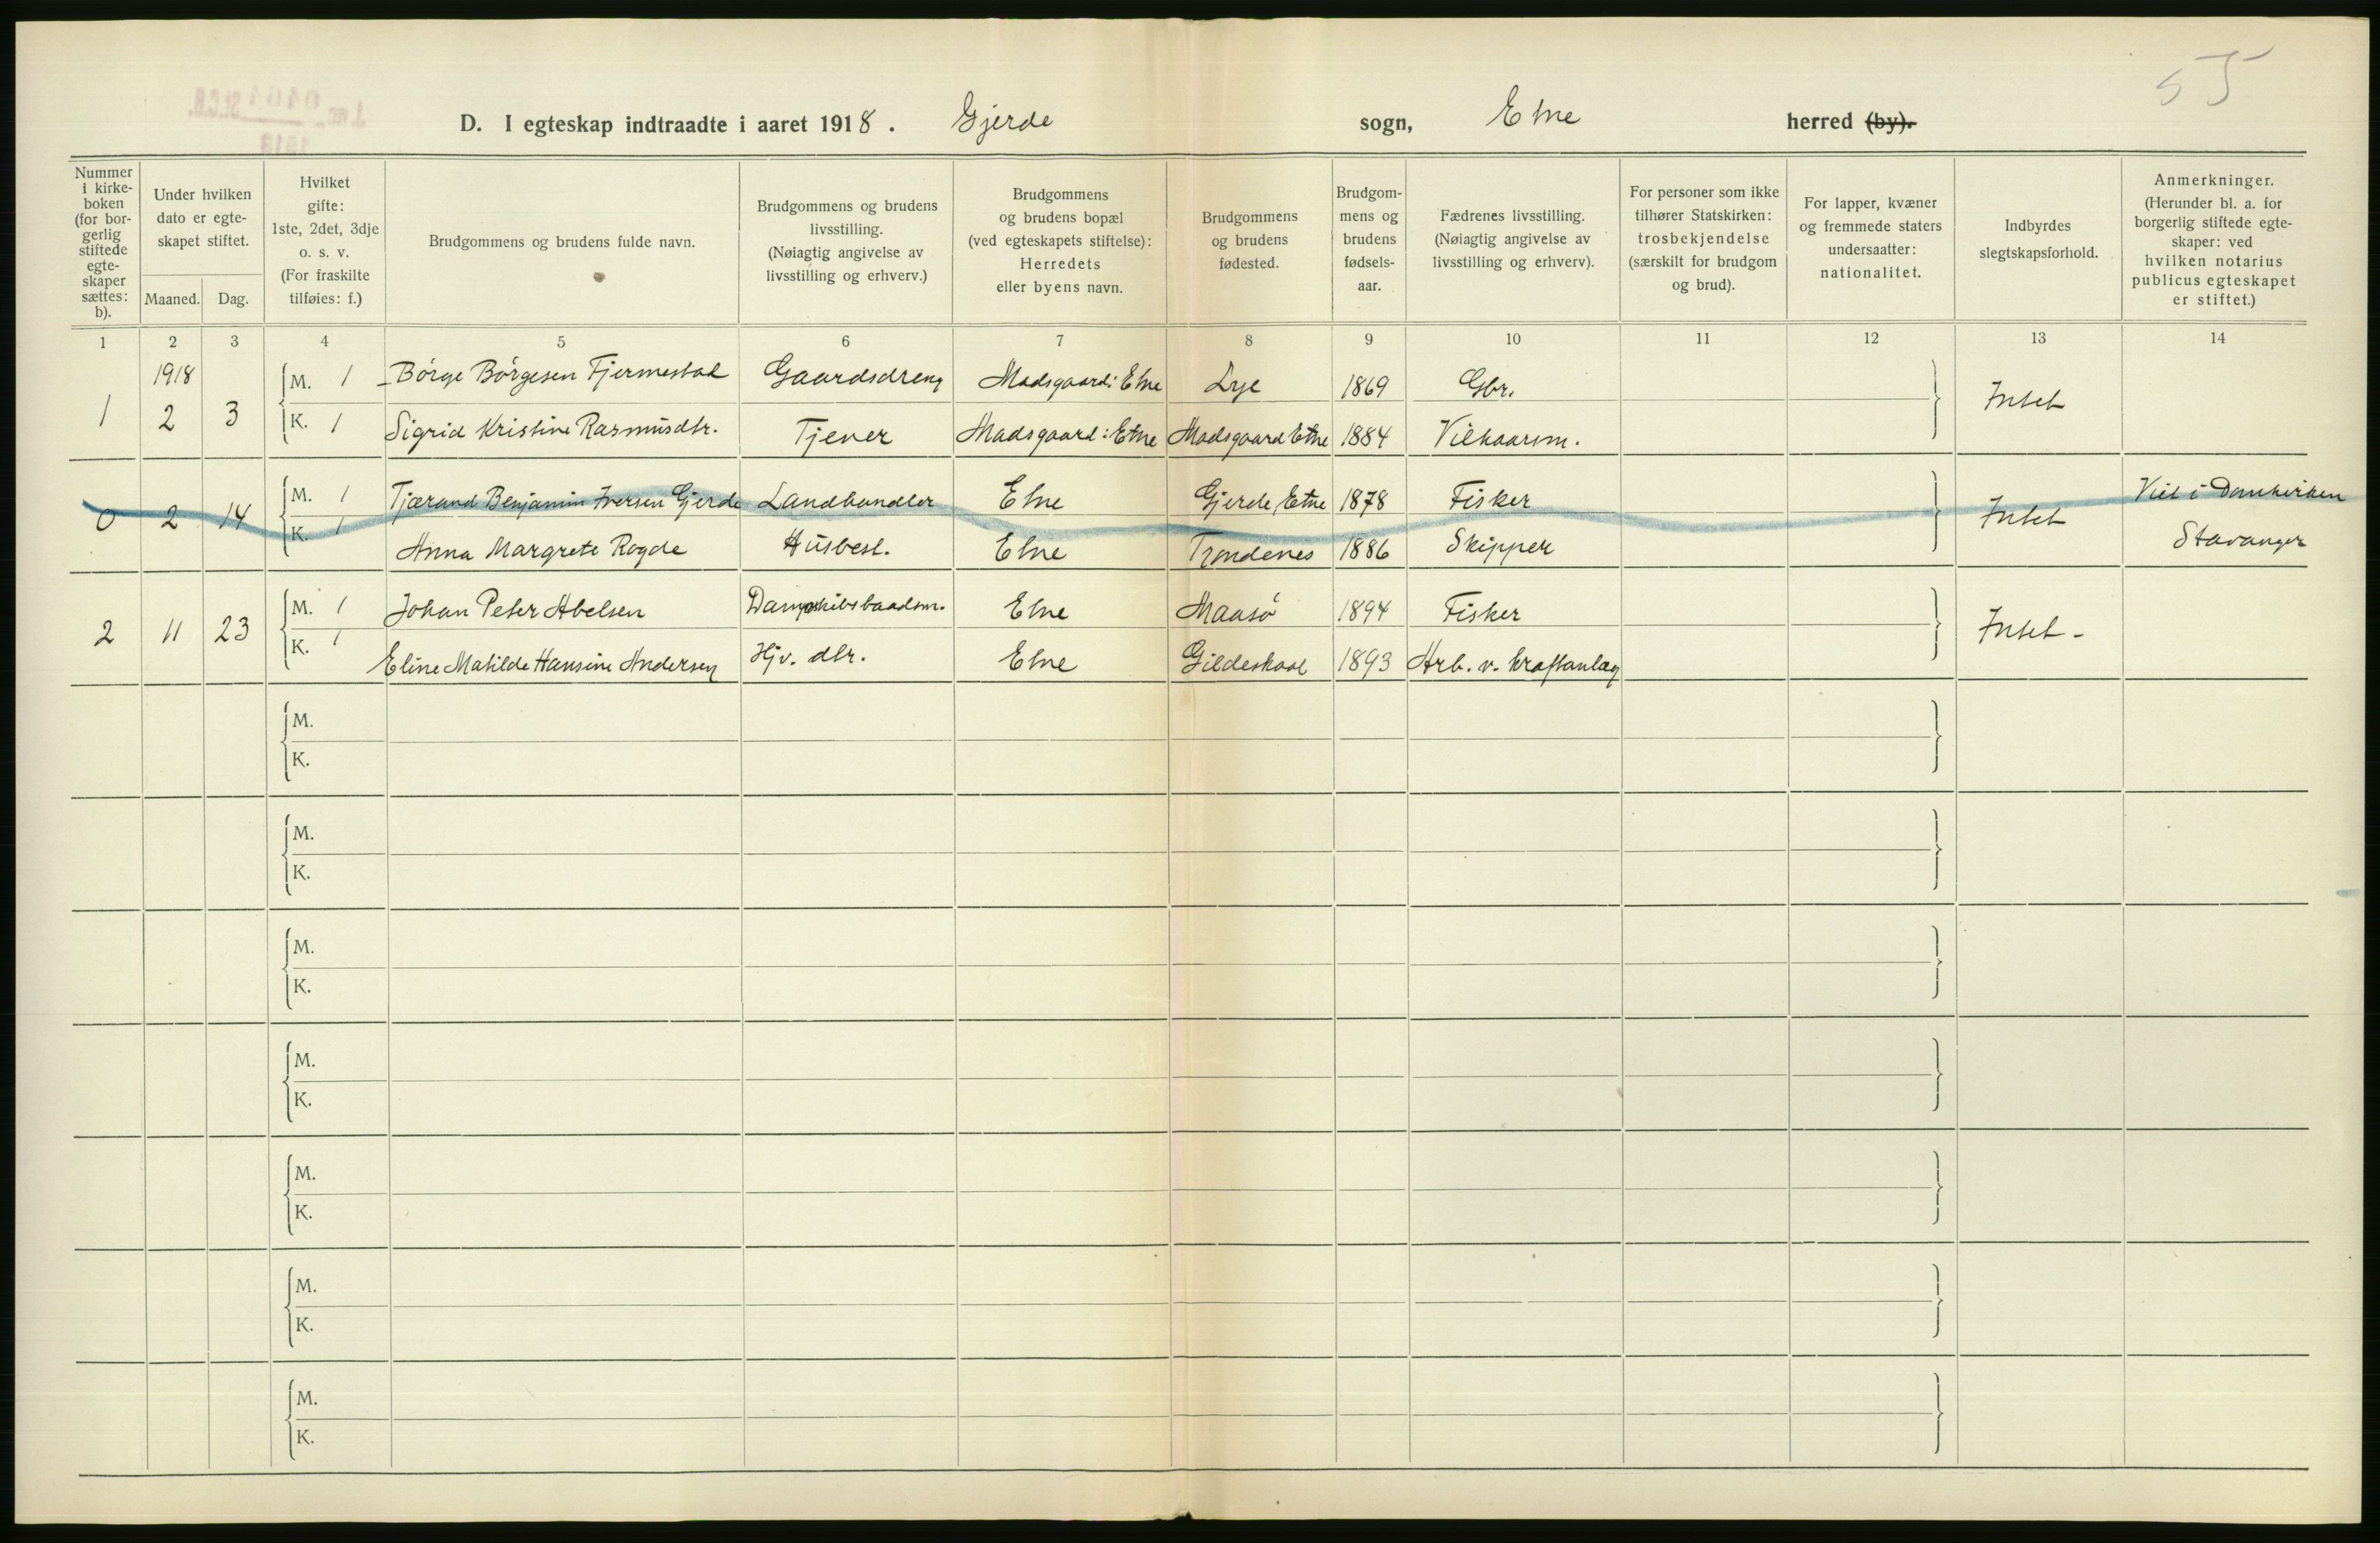 55
D. I egteskap indtraadte i aaret 1918. Gjerde sogn, Etne herred (by).
Nummer i kirkeboken (for borgerlig stiftede egteskaper sættes: b).
Under hvilken dato er egteskapet stiftet.
Maaned. Dag.
Hvilket gifte: 1ste, 2det, 3dje o. s. v. (For fraskilte tilføies: f.)
Brudgommens og brudens fulde navn.
Brudgommens og brudens livsstilling. (Nøiagtig angivelse av livsstilling og erhverv.)
Brudgommens og brudens bopæl (ved egteskapets stiftelse): Herredets eller byens navn.
Brudgommens og brudens fødested.
Brudgommens og brudens fødselsaar.
Fædrenes livsstilling. (Nøiagtig angivelse av livsstilling og erhverv).
For personer som ikke tilhører Statskirken: trosbekjendelse (særskilt for brudgom og brud).
For lapper, kvæner og fremmede staters undersaatter: nationalitet.
Indbyrdes slegtskapsforhold.
Anmerkninger. (Herunder bl. a. for borgerlig stiftede egteskaper: ved hvilken notarius publicus egteskapet er stiftet.)
1 2 3 4 5 6 7 8 9 10 11 12 13 14
1918
1 2 3 M. 1 Börge Börgesen Fjermestad Gaardsdreng Madsgaard: Etne Lye 1869 Gbr. Intet
K. 1 Sigrid Kristine Rasmusdtr. Tjener Madsgaard: Etne Madsgaard Etne 1884 Vilkaarsm.
0 2 14 M. 1 Tjærand Benjamin Iversen Gjerde Landhandler Etne Gjerde, Etne 1878 Fisker Intet Viet i Domkirken
K. 1 Anna Margrete Rogde Husbest. Etne Trondenes 1886 Skipper Stavanger
2 11 23 M. 1 Johan Peter Abelsen Dampskibsbaadsm. Etne Maasö 1894 Fisker Intet -
K. 1 Eline Matilde Hansine Andersen Hjv. dtr. Etne Gildeskaal 1893 Arb. v. kraftanlæg
M.
K.
M.
K.
M.
K.
M.
K.
M.
K.
M.
K.
M.
K.